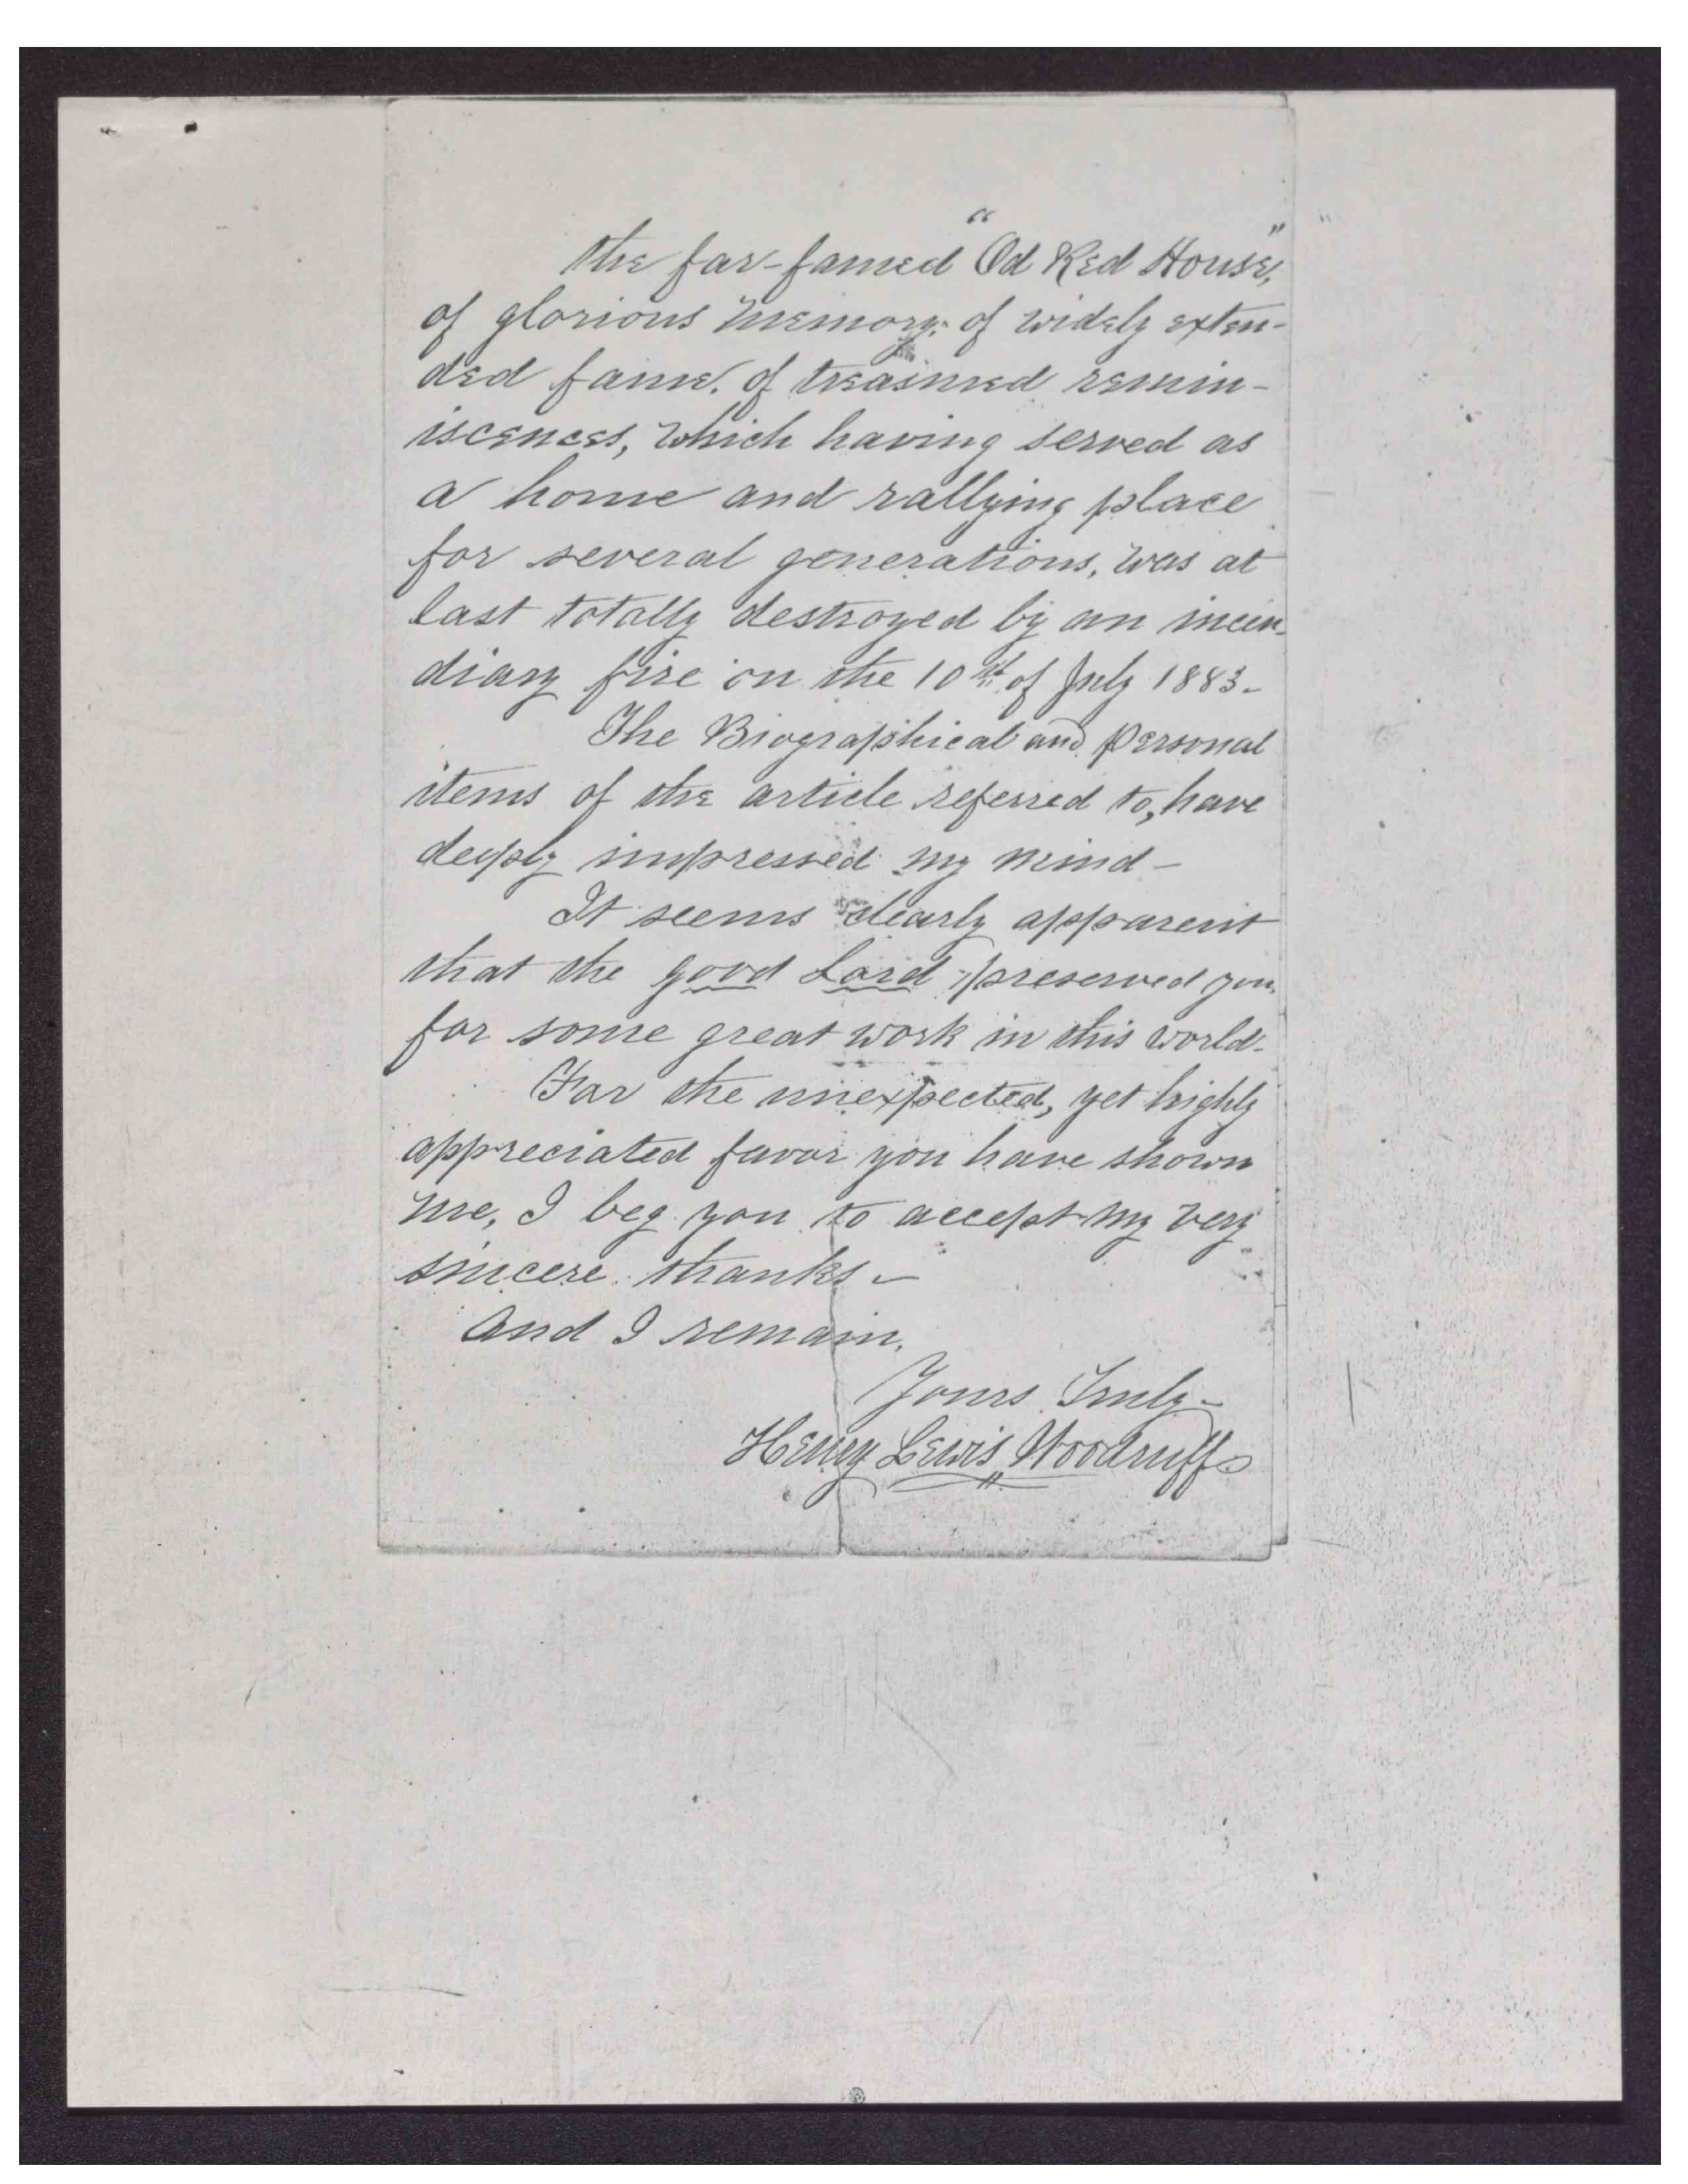 the far-famed "Od Red House,"
of glorious memory; of widely exten-
ded fame. of treasured remin-
iscences, which having served as
a home and rallying place
for several generations, was at
last totally destroyed by an incen-
diary fire on the 10th of July 1883-
The Biographical and personal
items of the article referred to, have
deeply impressed my mind-
It seems clearly apparent
that the good Lord preserved you
for some great work in this world-
For the unexpected, yet highly
appreciated favor you have shown
me, I beg you to accept my very
sincere thanks-
And I remain,
Yours Truly-
Henry Lewis Woodruff